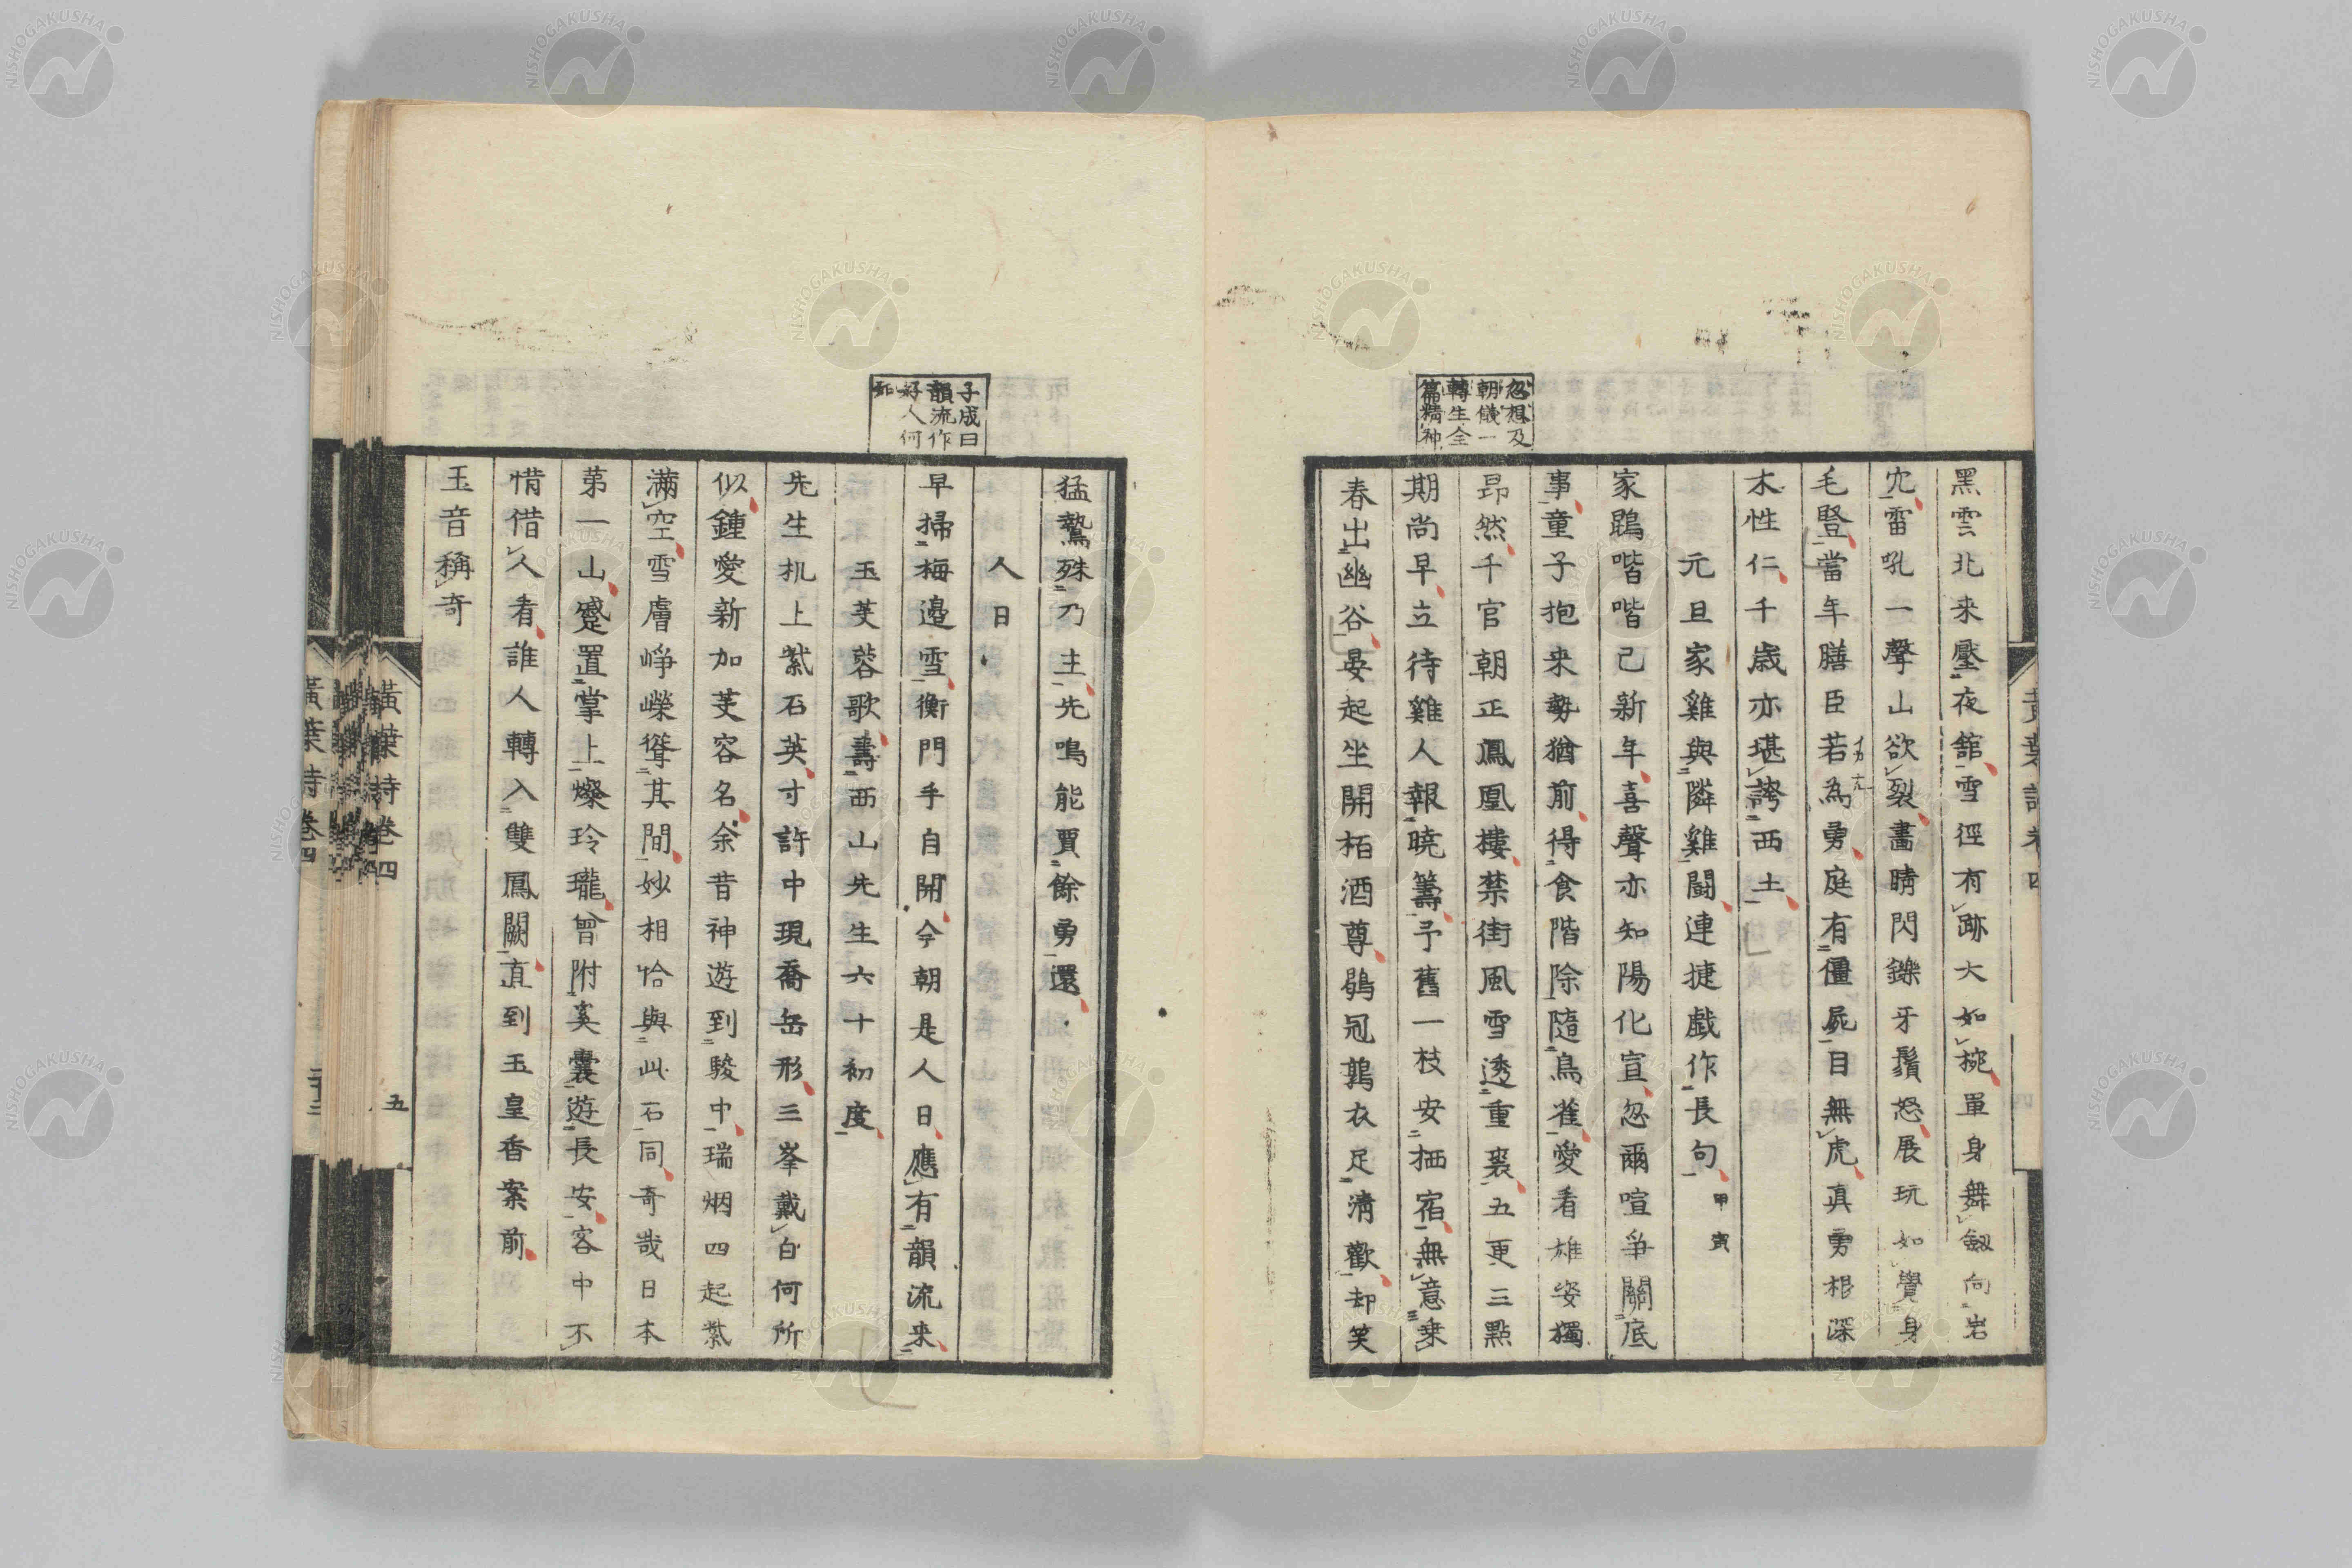 忽想及
朝儀一
轉生全
篇精神
黑雲北来壓夜舘雪徑有跡大如椀單身舞劔向岩
穴雷吼一聲山欲裂晝晴閃鑠牙鬚怒展玩如覺身
毛豎當年膳臣若為勇庭有僵屍目無虎真勇根深
木性仁千歳亦堪誇西土
元旦家雞與隣雞鬪連捷戯作長句甲寅
家鷄喈喈已新年喜聲亦知陽化宣忽爾喧爭關底
事童子抱来勢猶前得食階除隨鳥雀愛看雄姿獨
昂然千官朝正鳳凰樓禁街風雪透重裘五更三點
期尚早立待雞人報曉籌予舊一枝安栖宿無意乗
春出幽谷晏起坐開栢酒尊鶡冠鶉衣足清歡却笑
子成曰
韻流作
好人何
如
猛鷙殊乃主先鳴能賈餘勇還
人日
早掃梅邉雪衡門手自開今朝是人日應有韻流来
玉芙蓉歌壽西山先生六十初度
先生机上紫石英寸許中現喬岳形三峯戴白何所
似鍾愛新加芙容名余昔神遊到駿中瑞烟四起紫
滿空雪膚崢嶸聳其間妙相恰與此石同奇哉日本
第一山蹙置掌上燦玲瓏曾附奚囊遊長安客中不
惜借久看誰人轉入雙鳳闕直到玉皇香案前
玉音稱奇
黃葉詩卷四
五